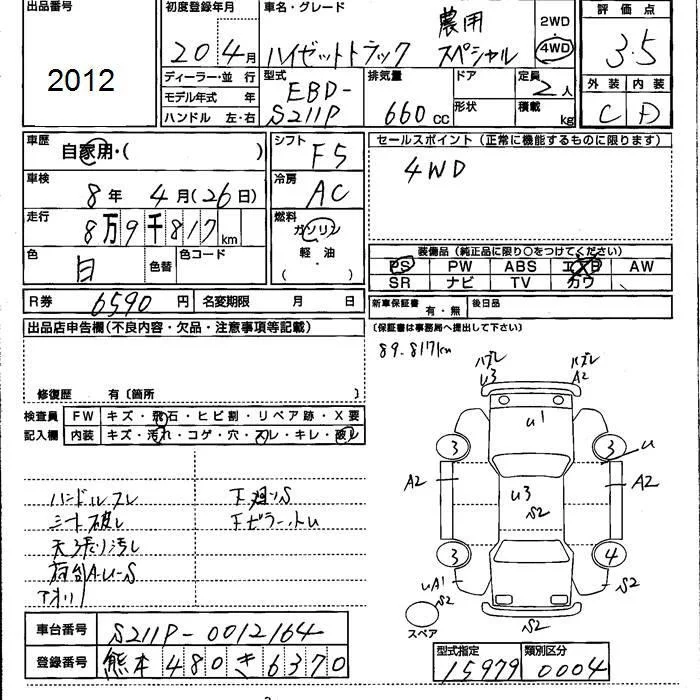 出品番号
2012
初度登録年月
20 4月
車名・グレード
ハイゼットトラック
農用
スペシャル
2WD
4WD
評価点
3.5
外装 内装
C D
ディーラー・並行
モデル年式 年
ハンドル 左・右
型式
EBD-
S211P
排気量
660cc
ドア
形状
定員
2人
積載
kg
車歴
自家用・( )
車検
8年 4月(26日)
走行
8万9千817km
色
白
色替
色コード
シフト
F5
冷房
AC
燃料
ガソリン
軽油
( ・ )
セールスポイント(正常に機能するものに限ります)
4WD
装備品(純正品に限り○をつけてください)
PS PW ABS エアB AW
SR ナビ TV カワ
R券 6590円 名変期限 月 日
新車保証書 有・無 後日品
(保証書は事務局へ提出して下さい)
89.817km
出品店申告欄(不良内容・欠品・注意事項等記載)
修復歴 有〔箇所 〕
検査員
記入欄
FW キズ・飛石・ヒビ割・リペア跡・X要
内装 キズ・汚れ・コゲ・穴・スレ・キレ・破レ
ハンドルスレ
シート破レ
天張り汚レ
荷台A-U-S
アオリ
下廻りS
ハズレ
U3
ハズレ
A2
U1
3
3
U
A2
A2
U3
S2
3
4
UA1
S2
S2
S2
スペア
車台番号 S211P-0012164
登録番号 熊本480き6370
型式指定 類別区分
15979 0004